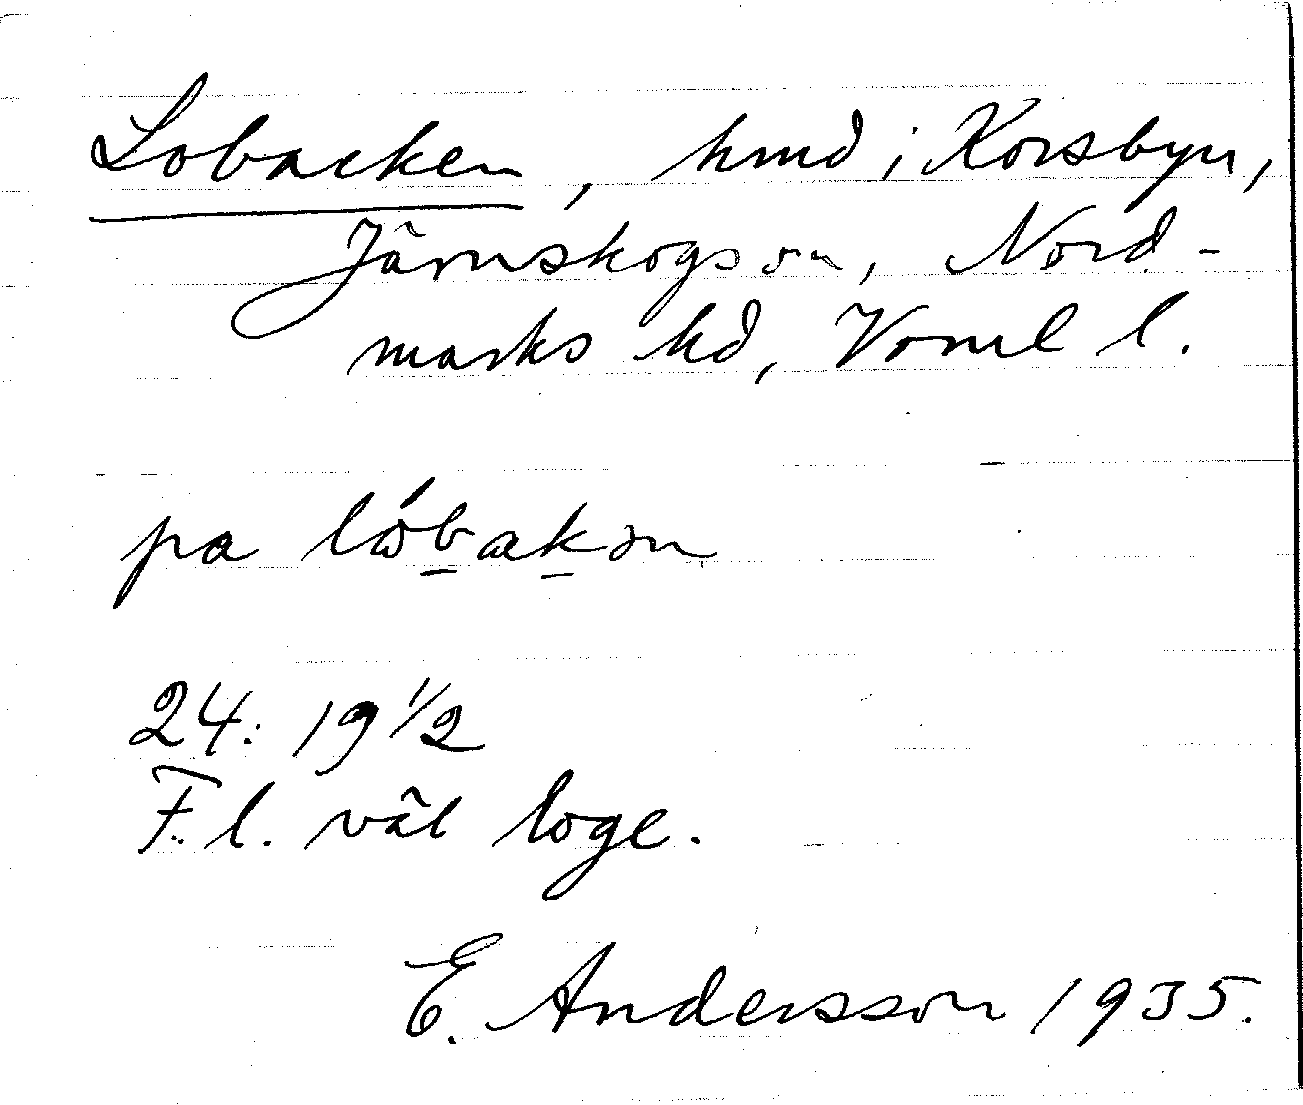 Lobacken, hmd i Korsbyn,
Järnskogs sn, Nord-
marks hd, Vorml l.
pa lóbakən
24: 19 1/2
F. l. väl loge.
E. Andersson 1935.